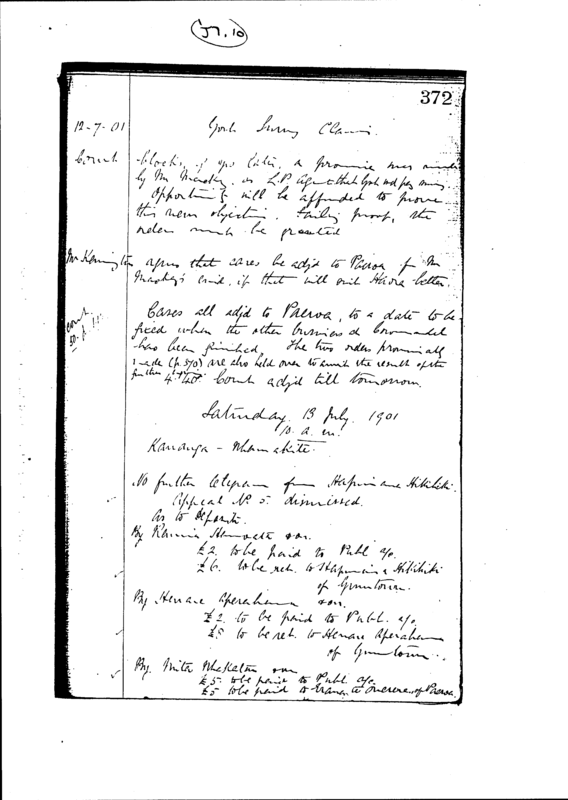 J7.10
372
12-7-01 Govt Survey Claims.
Court blocks, if yrs later, a promise was made
by Mr Mackay, as L.P. Agent that Govt wd pay
Opportunity will be afforded to prove
this new objection. Failing proof, the
orders must be granted
Mr Kennington agrees that cases be adjd to Paeroa for Mr
Mackay's evid. if that will suit Haora better.
Court
Cases all adjd to Paeroa, to a date to be
fixed when the other business at Coromandel
has been finished. The two orders provisionally
made (p. 370) are also held over to await the result of the
further
Court adjd till tomorrow.
Saturday, 13 July, 1901
10. a.m.
Karanga - Whamakite.
No further telegram from Hapimana Hikihiki.
Appeal No 5. dismissed.
As to Deposits.
By
£2. to be paid to Publ a/c.
£6. to be ret. to Hapimana Hikihiki
of Grahamtown.
By Henare Aperahama & ors.
£2 to be paid to Publ. a/c.
£5 to be ret. to Henare Aperahama
of
By Mita Whakatau & ors
£5. to be paid to Publ a/c.
£5 to be paid to of Paeroa.